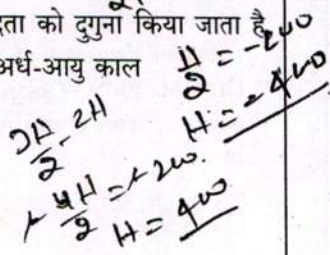 ता को दुगुना किया जाता है
अर्ध-आयु काल
H/2 = -200
H = -400
2H
H/2 = 200.
H = 400